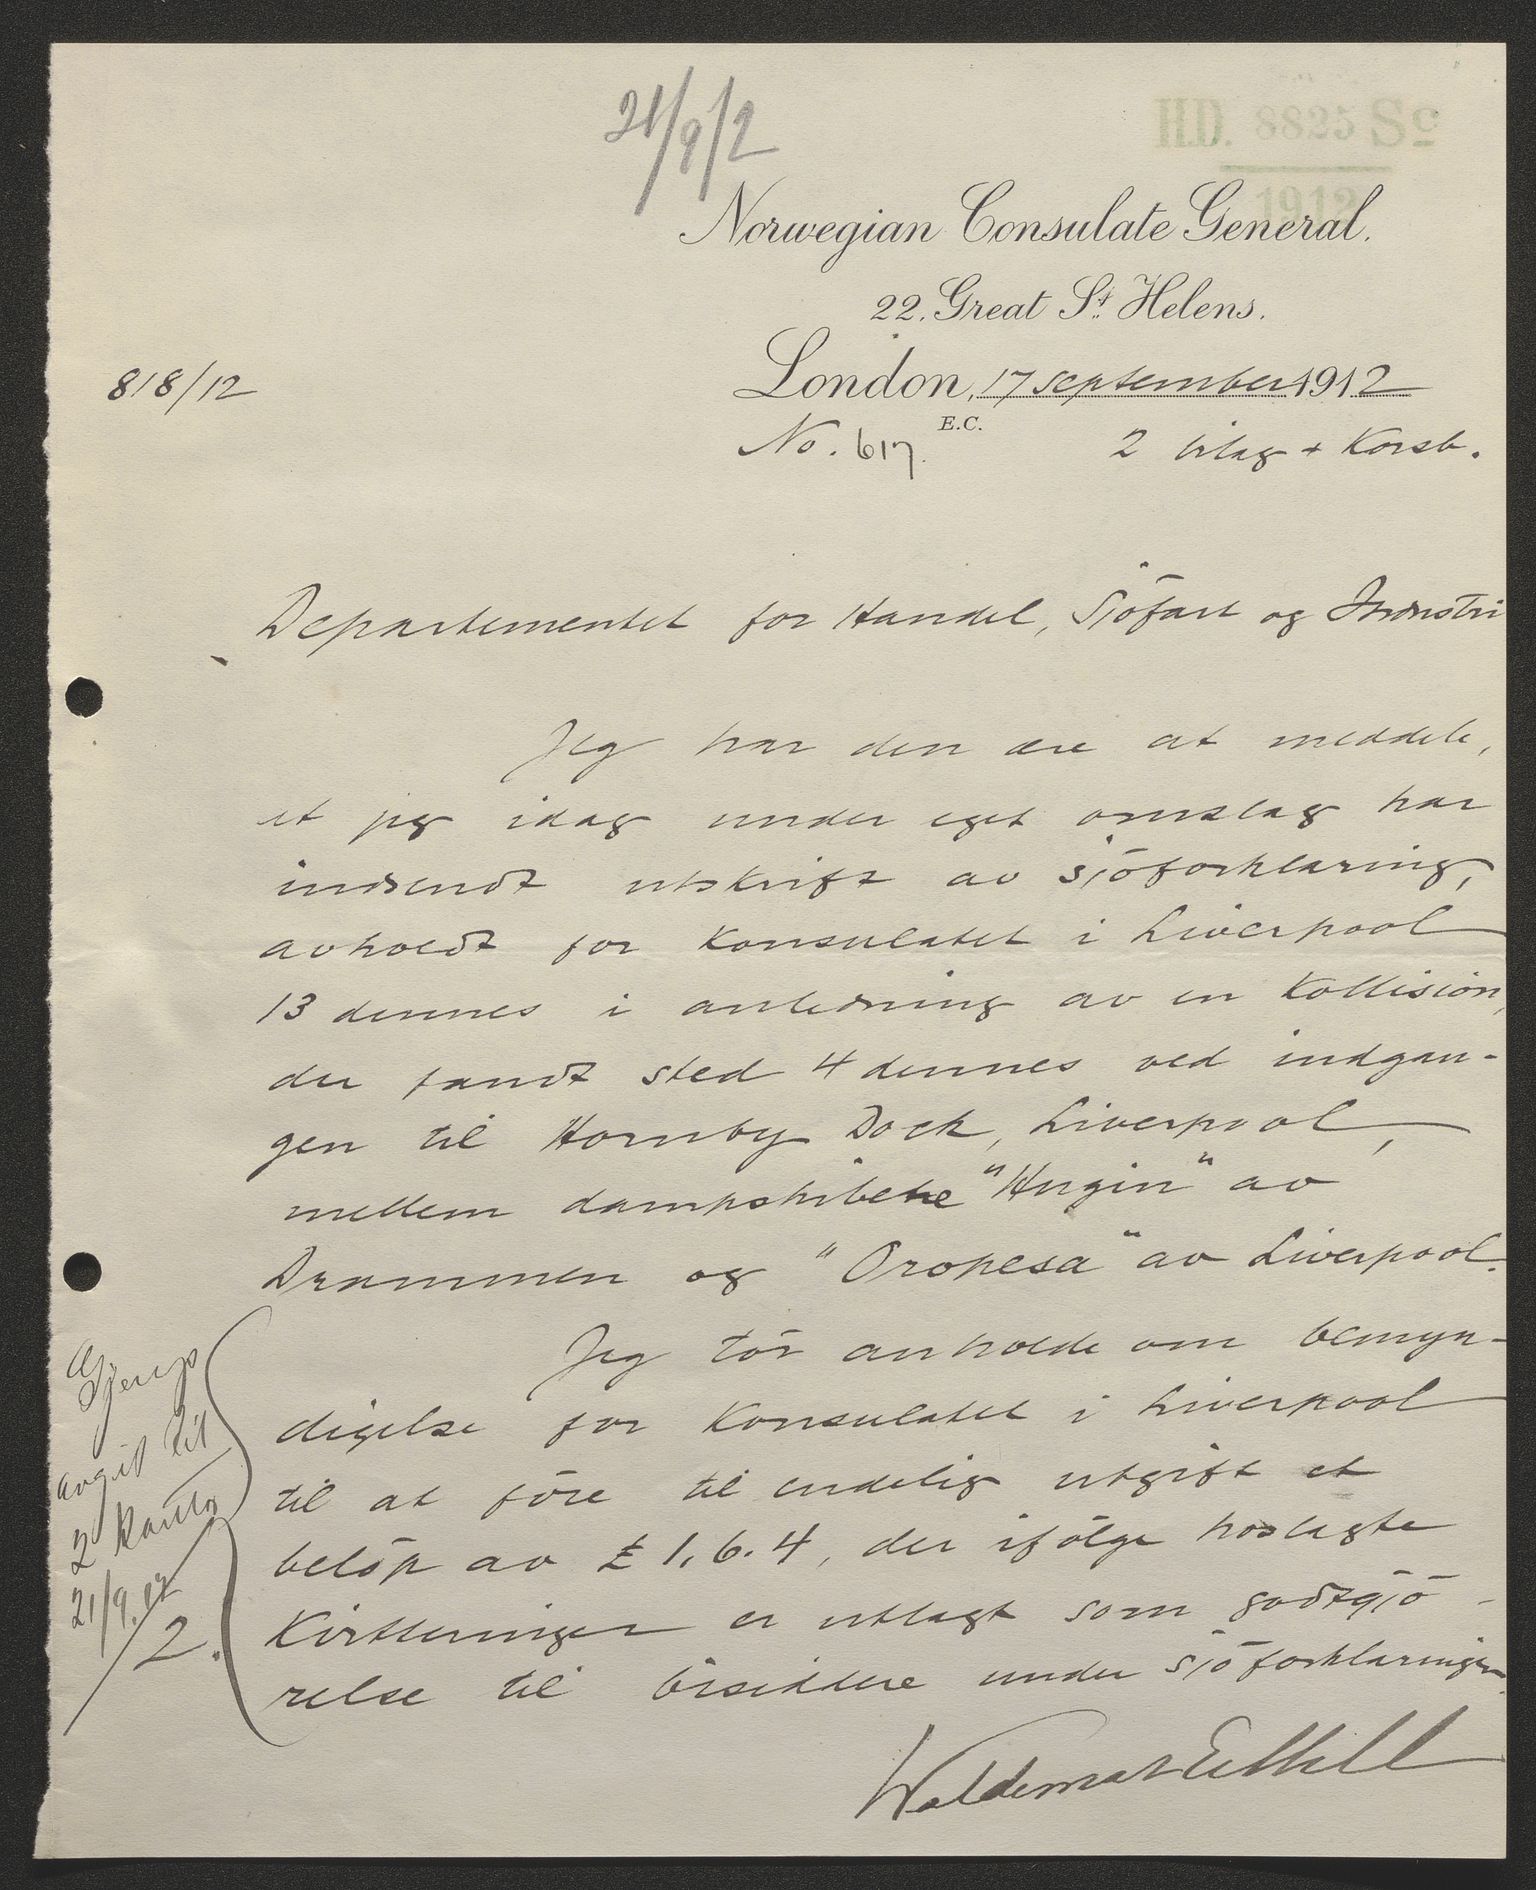 21/9/2
H.D. 8825 Sc
1912
Norwegian Consulate General.
22. Great St. Helens.
818/12
London, 17 September 1912
E.C.
No. 617.
2 bilag + Korsb.
Departementet for Handel, Sjöfart og Industri
Jeg har den ære at meddele,
at jeg idag under eget omslag har
indsendt utskrift av sjöforklaring,
avholdt for Konsulatet i Liverpool
13 dennes i anledning av en Kollision,
der fandt sted 4 dennes ved indgan-
gen til Hornby Dock, Liverpool,
mellem dampskibene "Hugin" av
Drammen og "Oropesa" av Liverpool.
Jeg tör anholde om bemyn-
digelse for Konsulatet i Liverpool
til at före til endelig utgift et
belöp av £ 1.6.4, der ifölge hoslagte
Kvitteringer er utlagt som godtgjö-
relse til bisiddere under sjöforklaringen.
Gjenp
avgit til
2 Kontor
21/9.12
/2.
Waldemar